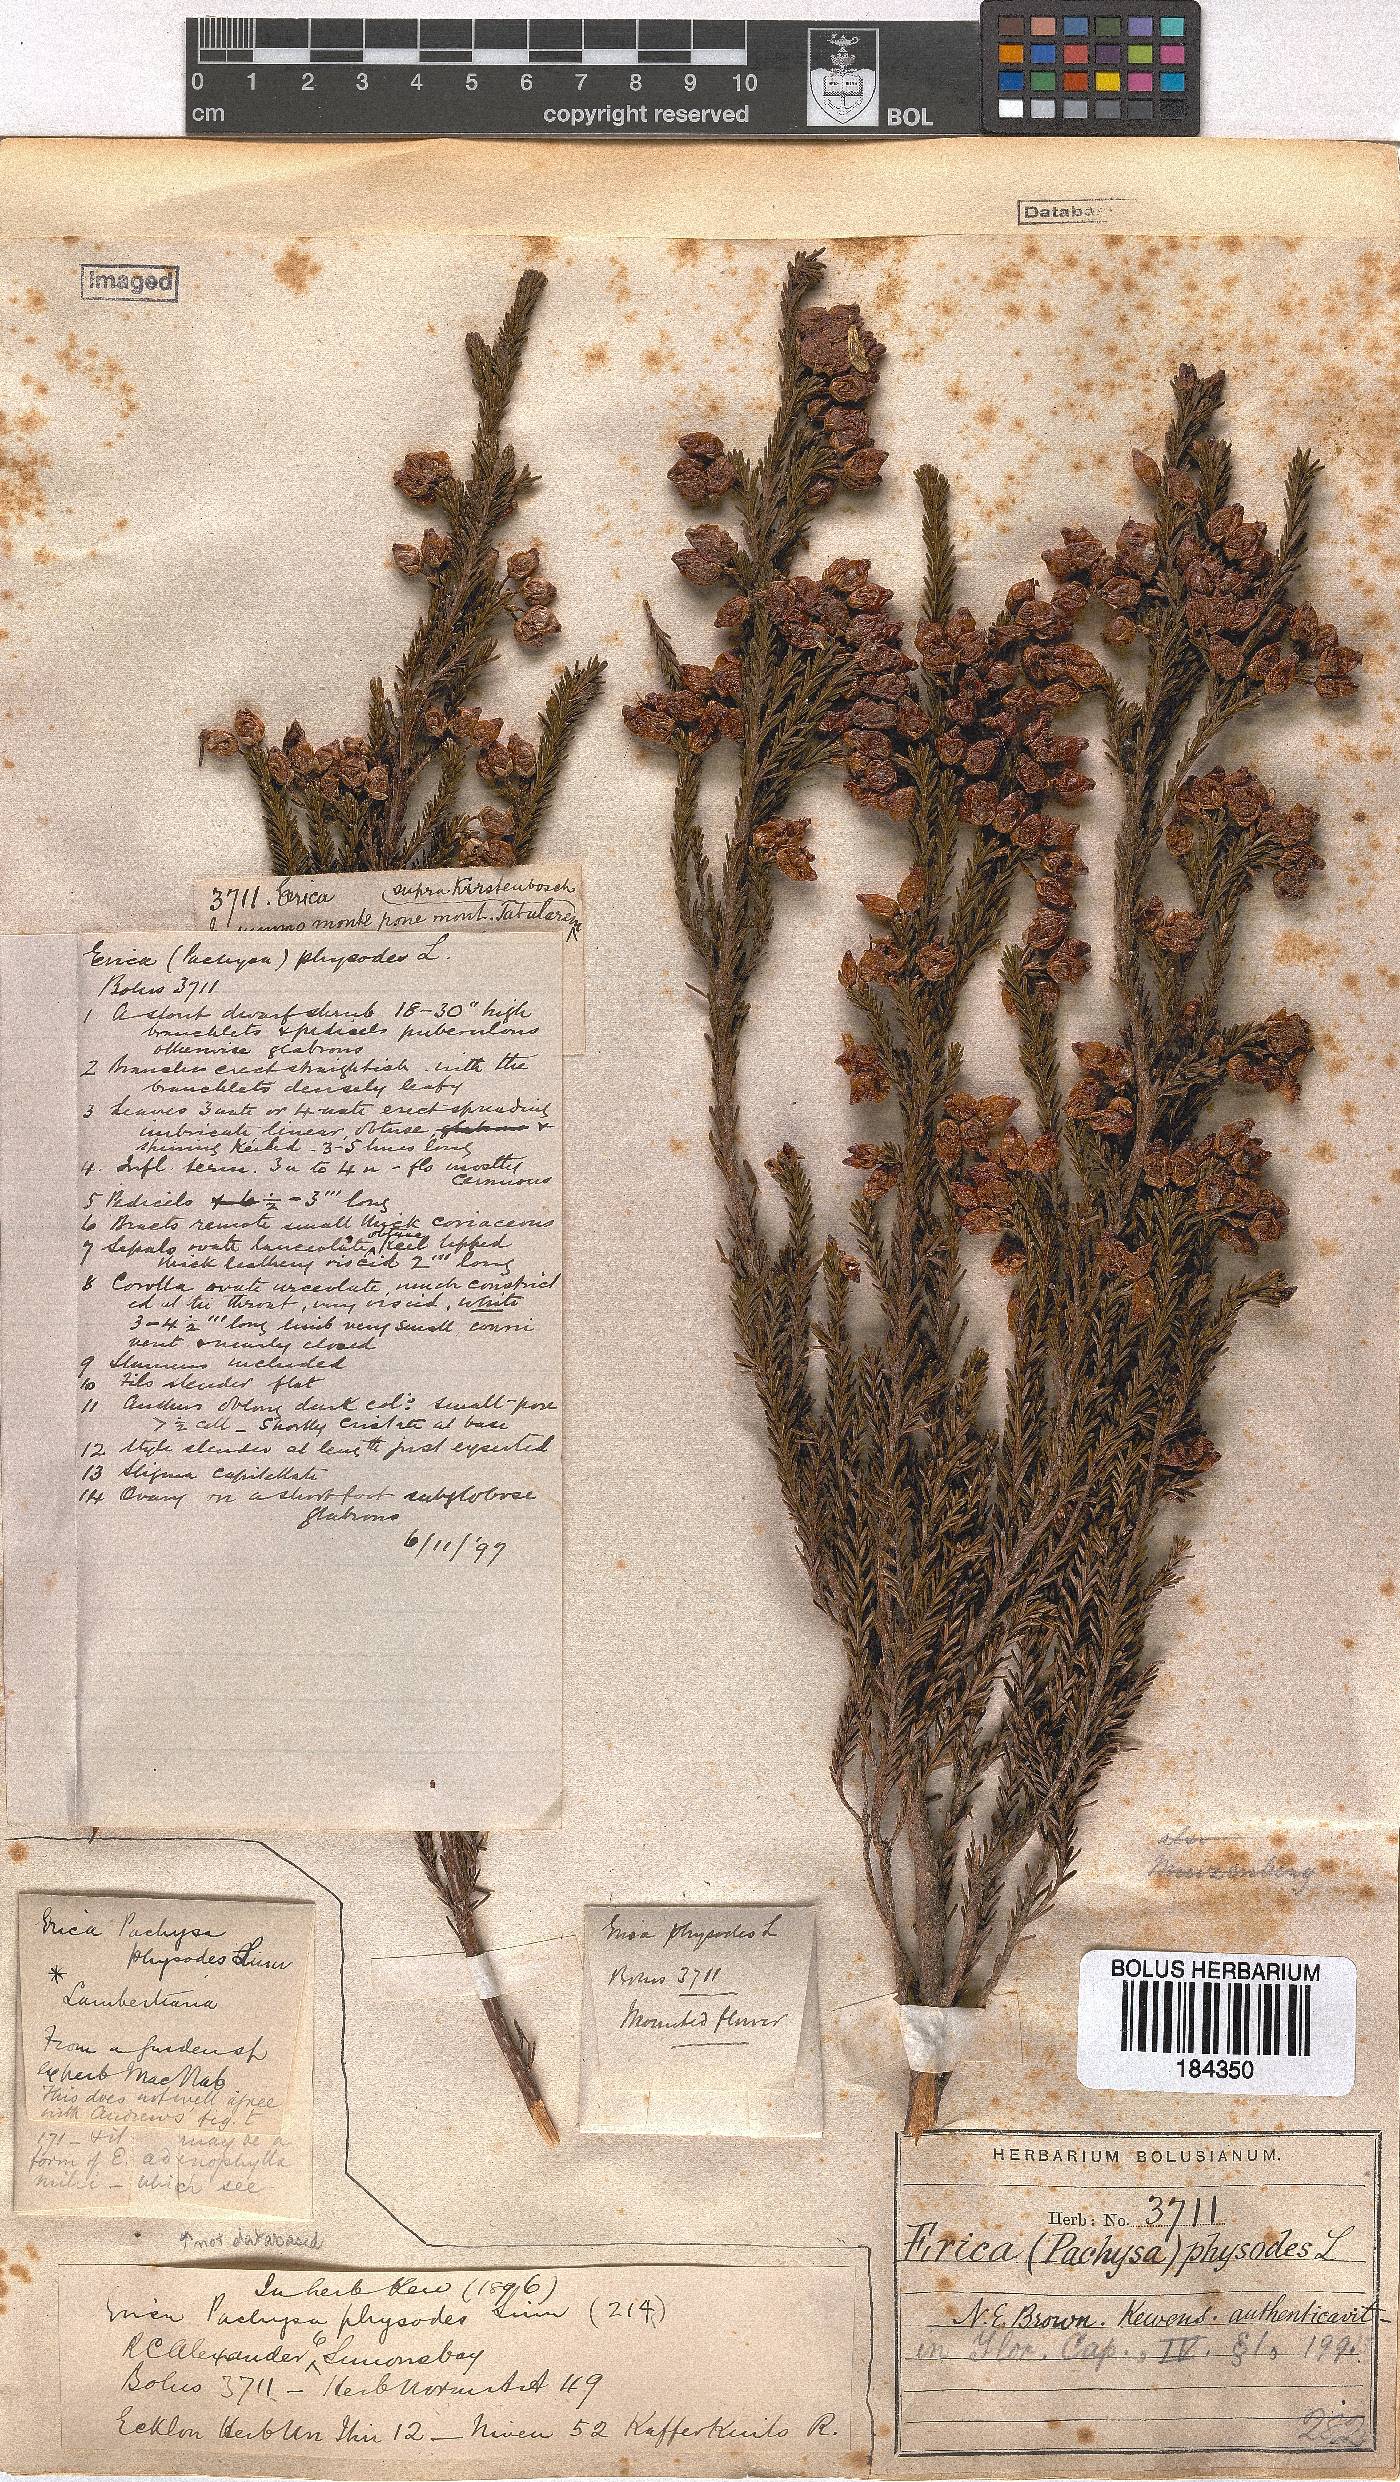 0 1 2 3 4 5 6 7 8 9 10
cm
copyright reserved
BOL
Databa
imaged
3711. Erica (supra Kirstenbosch
summo monte pone mont. Tabularem
Erica (Pachysa) physodes L.
Bolus 3711
1 A stout dwarf shrub 18-30" high
branchlets & pedicels puberulous
otherwise glabrous
2 Branches erect straightish with the
branchlets densely leafy
3 Leaves 3nate or 4-nate erect spreading
imbricate linear, obtuse glabrous &
shining keeled - 3-5 lines long
4. Infl. term. 3n to 4n - flo mostly
cernuous
5 Pedicels ½ - 3''' long
6 Bracts remote small thick coriaceous
7 Sepals ovate lanceolate, obtuse keel tipped
thick leathery viscid 2''' long
8 Corolla ovate urceolate, much constrict
ed at the throat, very viscid, white
3-4½''' long limb very small conni
vent & nearly closed
9 Stamens included
10 Fils slender flat
11 Anthers oblong dark col: small-pore
> ½ cell - Shortly cristate at base
12 Style slender at length just exserted
13 Stigma capitellate
14 Ovary on a short foot subglobose
glabrous
6/11/'97
also
Muizenberg
Erica Pachysa
physodes Linn
*
Lambertiana
From a garden sp
ex herb MacNab
This does not well agree
with Andrews fig. t
171 - & it may be a
form of E. adenophylla
mihi - which see
↑ not databased
Erica physodes L
Bolus 3711
Mounted flower
BOLUS HERBARIUM
184350
HERBARIUM BOLUSIANUM.
Herb: No. 3711
Erica (Pachysa) physodes L
N.E. Brown. Kewens. authenticavit -
in Flor. Cap., IV. §1, 199.
282
In herb Kew (1896)
Erica Pachysa physodes Linn (214)
RC Alexander, Simonsbay
Bolus 3711 - Herb Norm Aust A 49
Ecklon Herb Un Itin 12 - Niven 52 Kafferkuils R.